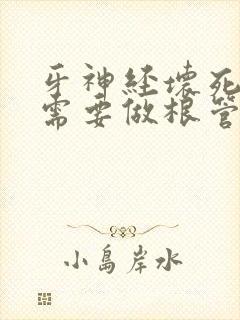 牙神经坏死
需要做根管
小島岸水